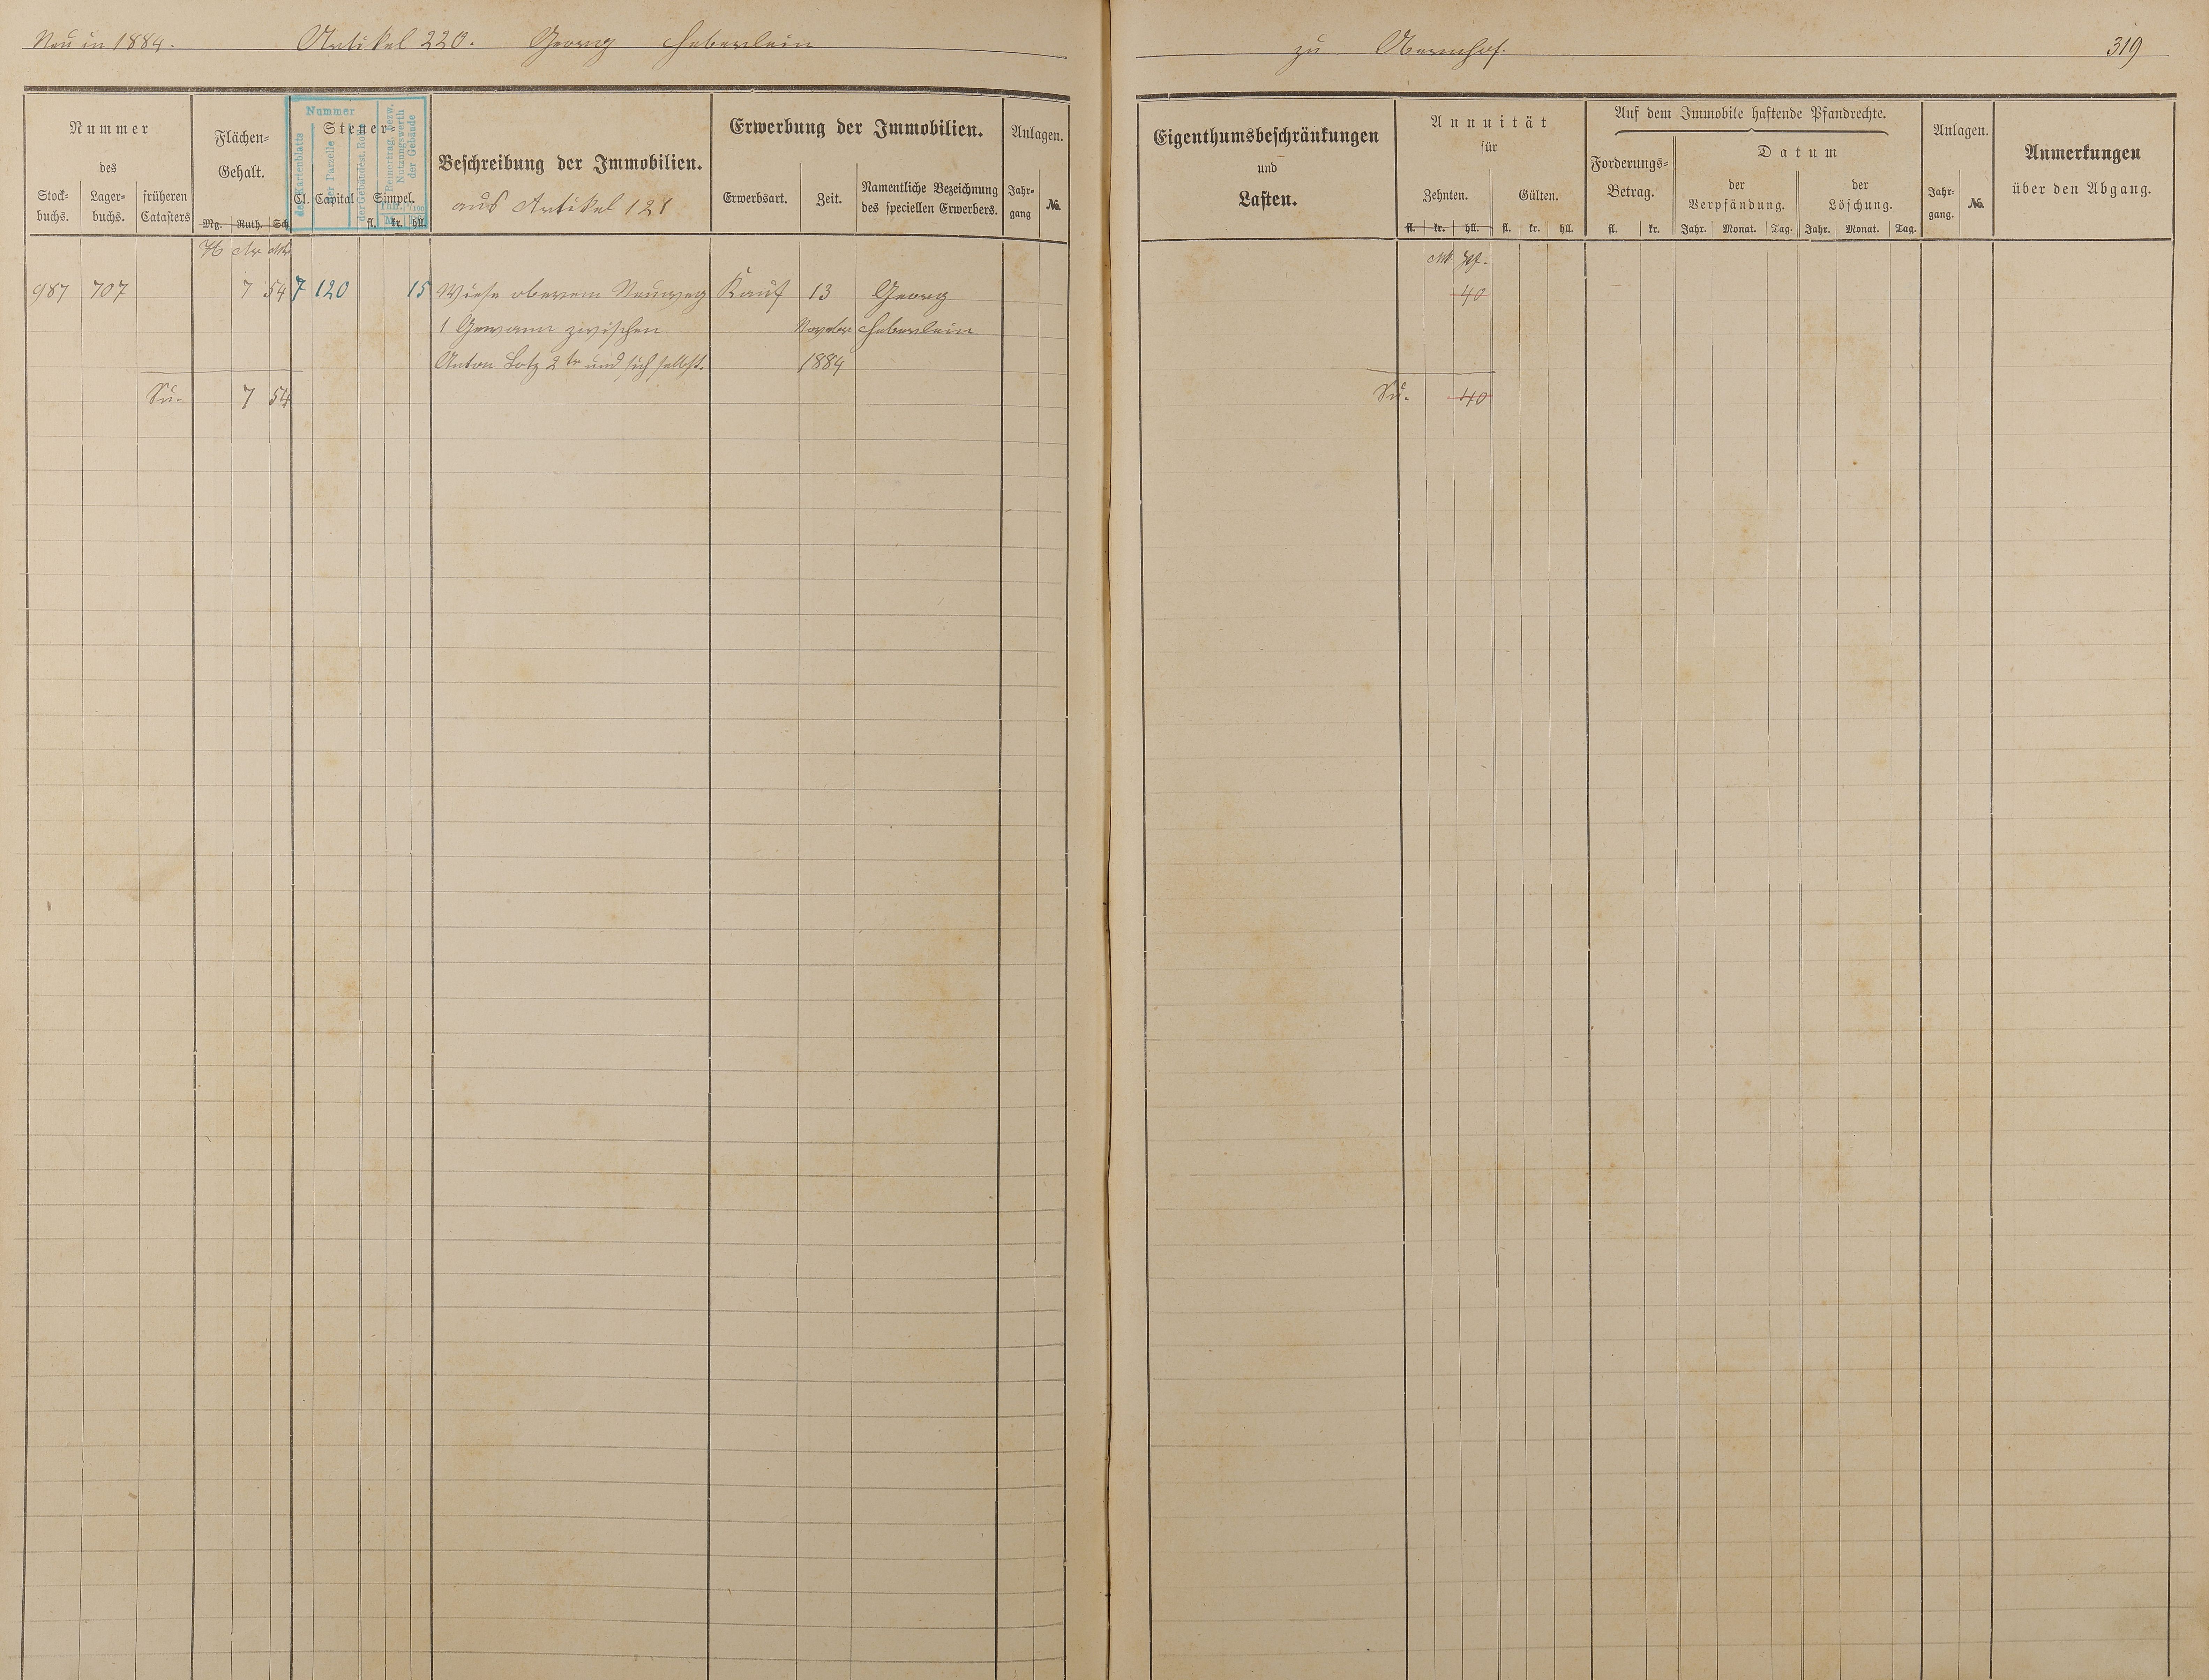 Neu in 1884. Artikel 220. Georg Heberlein
zu Obernhof. 319
Nummer
des
Stock-
buchs.
Lager-
buchs.
früheren
Catasters
Flächen-
Gehalt.
Mg. Ruth. Sch
Steuer-
Cl. Capital Simpel.
fl. kr. hll.
Nummer
des Kartenblatts
der Parzelle
Reinertrag bezw.
Nutzungswerth
der Gebäude
Beschreibung der Immobilien.
aus Artikel 121
Erwerbung der Immobilien.
Erwerbsart. Zeit.
Namentliche Bezeichnung
des speciellen Erwerbers.
Anlagen.
Jahr-
gang
No.
Eigenthumsbeschränkungen
und
Lasten.
Annuität
für
Zehnten. Gülten.
fl. kr. hll. fl. kr. hll.
Auf dem Immobile haftende Pfandrechte.
Forderungs-
Betrag.
fl. kr.
Datum
der
Verpfändung.
Jahr. Monat. Tag.
der
Löschung.
Jahr. Monat. Tag.
Anlagen.
Jahr-
gang.
No.
Anmerkungen
über den Abgang.
H Ar Mtr
987 707 7 54 7 120 15 Wiese oberem Neuweg Kauf 13 Georg
1 Gewann zwischen Novbr Heberlein
Anton Lotz 2tr und sich selbst. 1884
Su. 7 54
Mk Pf.
40
Su. 40